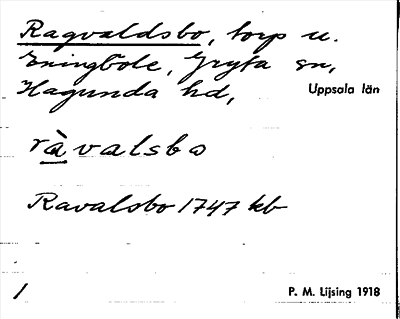 Ragvaldsbo, torp u.
Eningböle, Gryta sn,
Hagunda hd, Uppsala län
ràvalsbo
Ravalsbo 1747 kb
1
P. M. Lijsing 1918